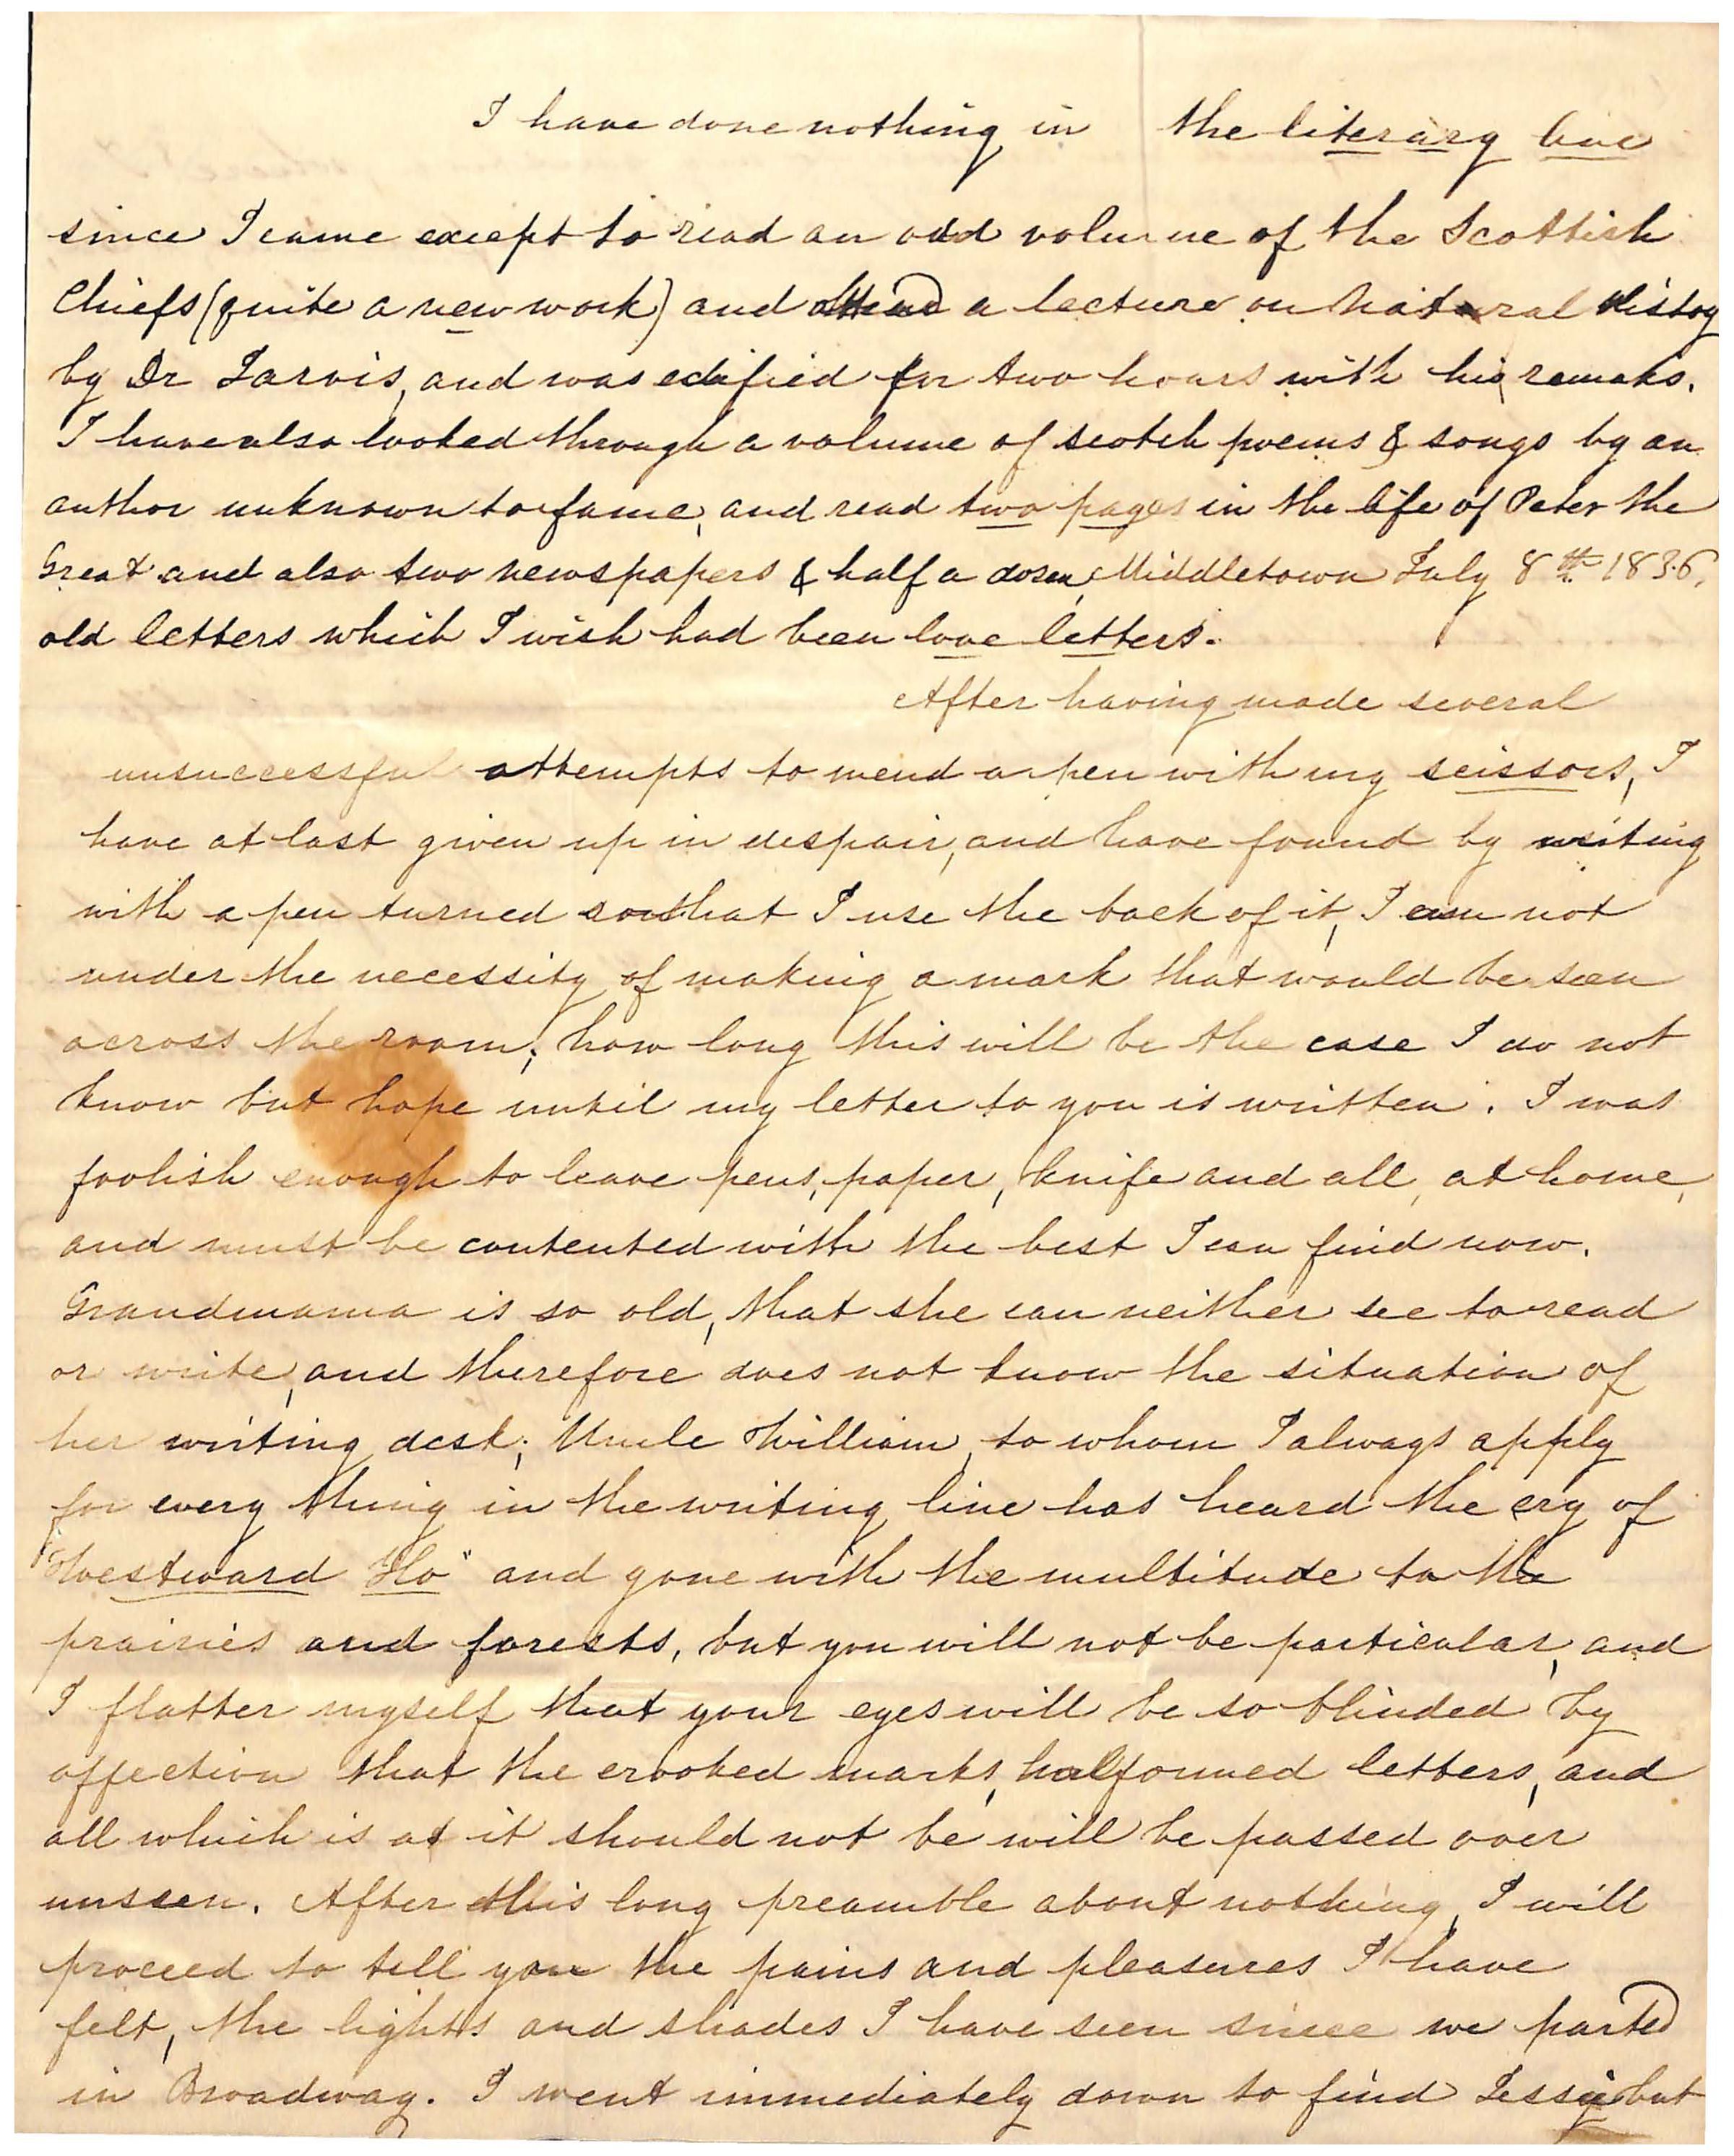 I have done nothing in the literary line
since I came except to read an odd volume of the Scottish
Chiefs (quite a new work) and attend a lecture on Natural Histoy
by Dr Jarvis, and was edified for two hours with his remaks.
I have also looked through a volume of scotch poems & songs by an
author unknown to fame, and read two pages in the life of Peter the
Great and also two newspapers & half a dosen, Middletown July 8th 1836,
old letters which I wish had been love letters.
After having made several
unsuccessful attempts to mend a pen with my scissors, I
have at last given up in despair, and have found by writing
with a pen turned so that I use the back of it, I am not
under the necessity of making a mark that would be seen
across the room; how long this will be the case I do not
know but hope until my letter to you is written. I was
foolish enough to leave pens, paper, knife and all, at home,
and must be contented with the best I can find now.
Grandmama is so old, that she can neither see to read
or write, and therefore does not know the situation of
her writing desk; Uncle William, to whom I always apply
for every thing in the writing line has heard the cry of
"Westward Ho" and gone with the multitude to the
prairies and forests, but you will not be particular, and
I flatter myself that your eyes will be so blinded by
affection that the crooked marks, half formed letters, and
all which is as it should not be will be passed over
unseen. After this long preamble about nothing, I will
proceed to tell you the pains and pleasures I have
felt, the lights and shades I have seen since we parted
in Broadway. I went immediately down to find but